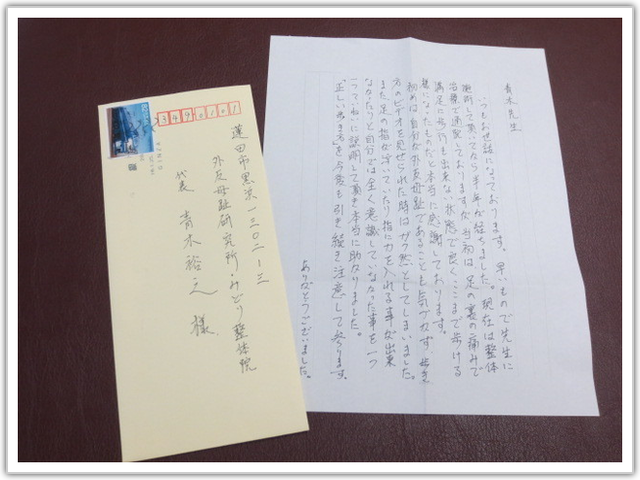 3490101
蓮田市黒浜一三〇二ー三
外反母趾研究所・みどり整体院
代表 青木裕之 様
青木先生
いつもお世話になっております。早いもので先生に
施術して頂いてから半年が経ちました。現在は整体
治療で通院しておりますが当初は足の裏の痛みで
満足に歩行も出来ない状態で良くここまで歩ける
様になったものだと本当に感謝しております。
初めは自分が外反母趾であることも気づかず、歩き
方のビデオを見せられた時はガク然としてしまいました。
また足の指が浮いていたり指に力を入れる事が出来
なかったりと自分では全く意識していなかった事を一つ
一つていねいに説明して頂き本当に助かりました。
"正しい歩き方"を今後も引き続き注意して参ります。
ありがとうございました。